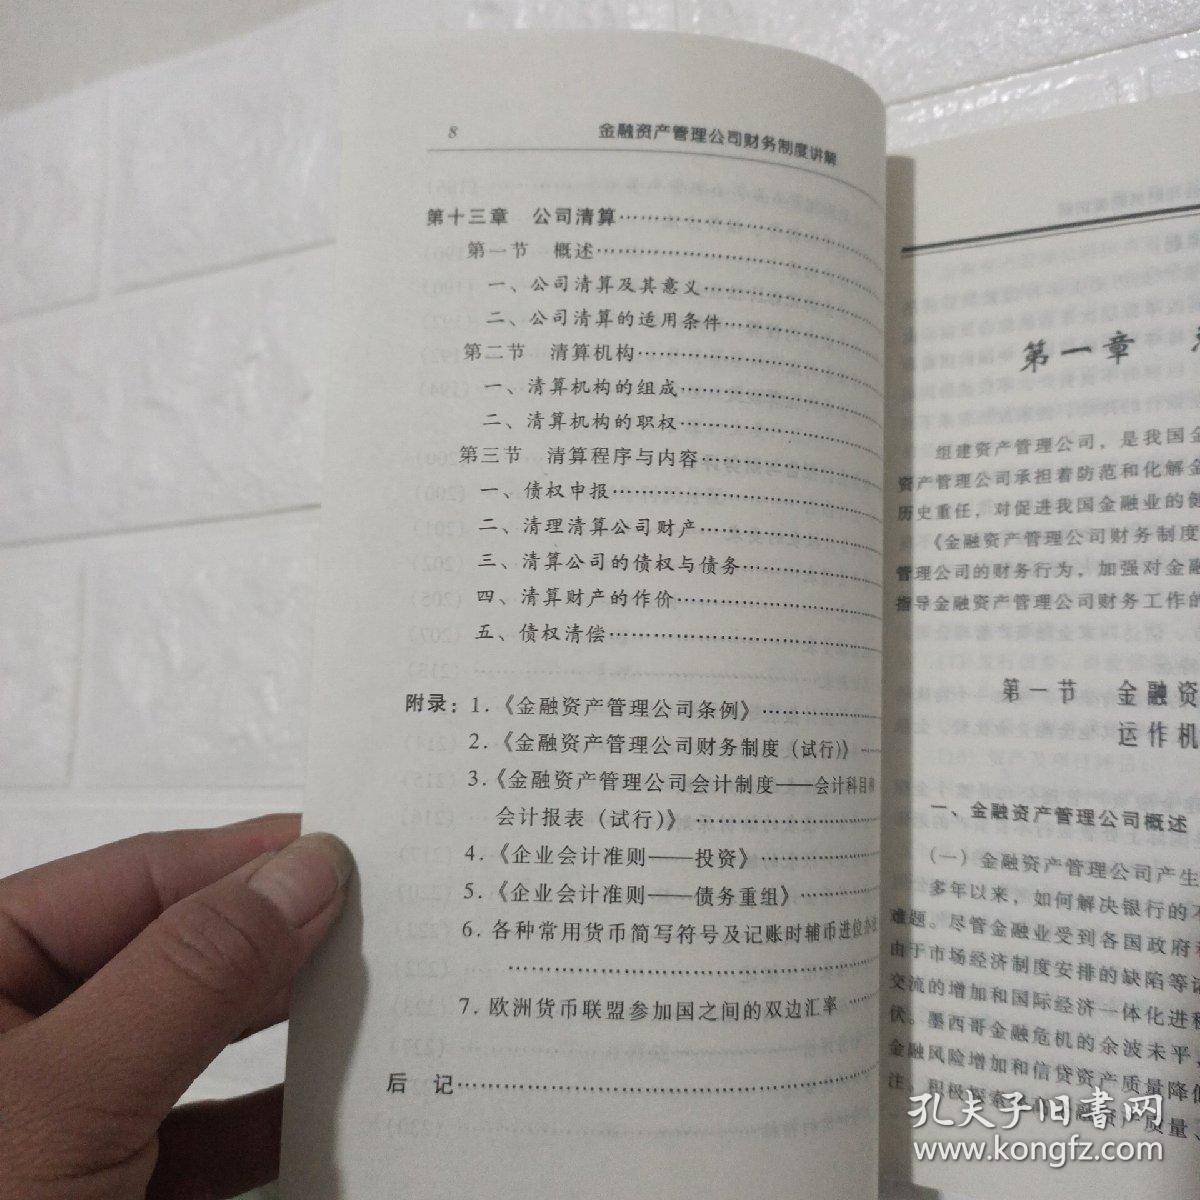 8 金融资产管理公司财务制度讲解
第十三章 公司清算
第一节 概述
一、公司清算及其意义
二、公司清算的适用条件
第二节 清算机构
一、清算机构的组成
二、清算机构的职权
第三节 清算程序与内容
一、债权申报
二、清理清算公司财产
三、清算公司的债权与债务
四、清算财产的作价
五、债权清偿
附录：1.《金融资产管理公司条例》
2.《金融资产管理公司财务制度（试行）》
3.《金融资产管理公司会计制度——会计科目和
会计报表（试行）》
4.《企业会计准则——投资》
5.《企业会计准则——债务重组》
6. 各种常用货币简写符号及记账时辅币进位办法
7. 欧洲货币联盟参加国之间的双边汇率
后 记
第一章
组建资产管理公司，是我国金
资产管理公司承担着防范和化解金
历史重任，对促进我国金融业的健
《金融资产管理公司财务制度
管理公司的财务行为，加强对金融
指导金融资产管理公司财务工作的
第一节 金融资
运作机
一、金融资产管理公司概述
（一）金融资产管理公司产生
多年以来，如何解决银行的不
难题。尽管金融业受到各国政府
由于市场经济制度安排的缺陷等诸
交流的增加和国际经济一体化进程
伏。墨西哥金融危机的余波未平，
金融风险增加和信贷资产质量降低
注。积极探索
融资产质量、
孔夫子旧书网
www.kongfz.com